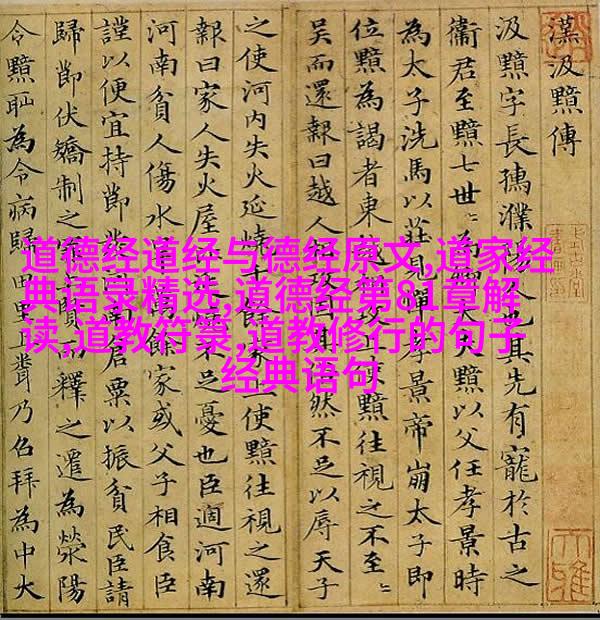 漢汲黯傳
汲黯字長孺濮人也其先有寵於古之
衞君至黯七世〻為大夫黯以父任孝景時
為太子洗馬以莊見憚孝景帝崩太子即
位黯為謁者東越攻上使黯往視之不至〻
吳而還報曰越人相攻固其然不足以辱天子
之使河內失火延燒千餘家上使黯往視之還
報曰家人失火屋延不足憂也臣過河南
河南貧人傷水家或父子相食臣
謹以便宜持節南倉粟以振貧民臣請
歸節伏矯制之賢而釋之遷為滎陽
令黯恥為令病歸田里上乃召拜為中大
道德经道经与德经原文,道家经
典语录精选,道德经第81章解
读,道教符箓,道教修行的句子
经典语句